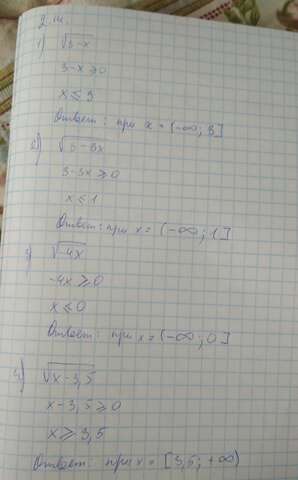 2 м.
1) √3-x
3-x ≥ 0
x ≤ 3
Ответ: при x = (-∞; 3]
2) √3-3x
3-3x ≥ 0
x ≤ 1
Ответ: при x = (-∞; 1]
3) √-4x
-4x ≥ 0
x ≤ 0
Ответ: при x = (-∞; 0]
4) √x-3,5
x-3,5 ≥ 0
x ≥ 3,5
Ответ: при x = [3,5; +∞)